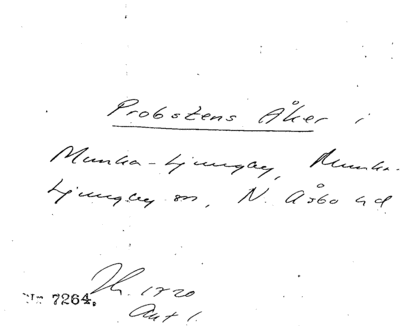 Probstens Åker i
Munka-Ljungby, Munka-
Ljungby sn, N. Åsbo hd
1820
No 7264. Akt 1.